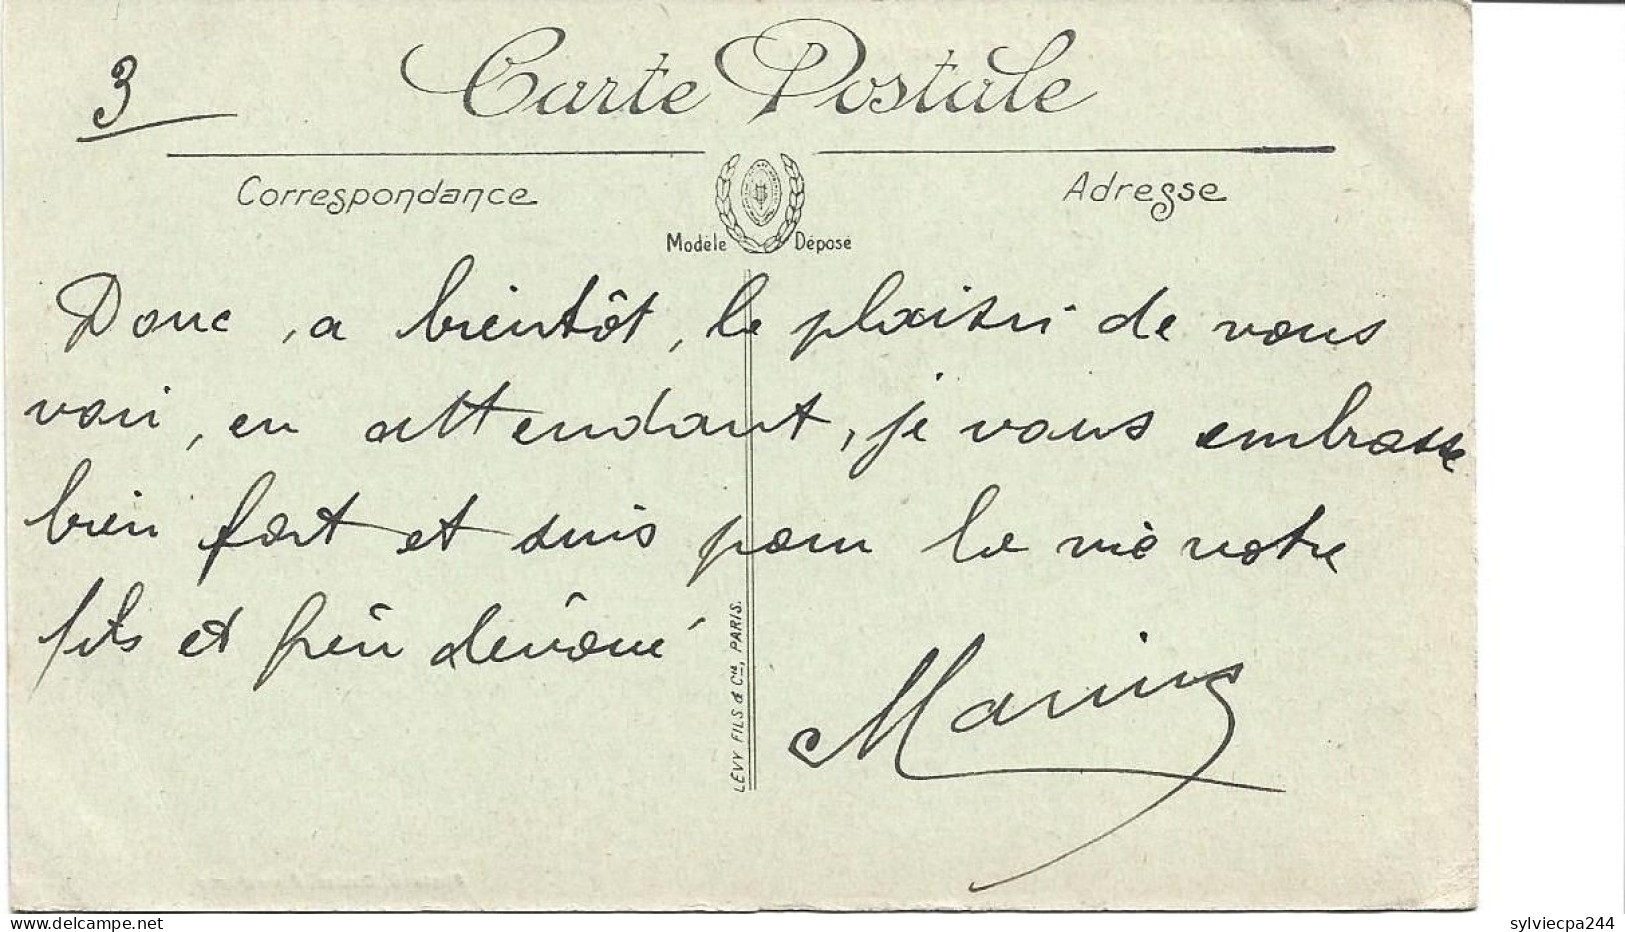 3
Carte Postale
Correspondance
Adresse
Modèle Déposé
Donc, a bientôt, le plaisir de vous
voir, en attendant, je vous embrasse
bien fort et suis pour la vie votre
fils et frère dévoué
Marius
LÉVY FILS & Cie, PARIS.
sylviecpa244